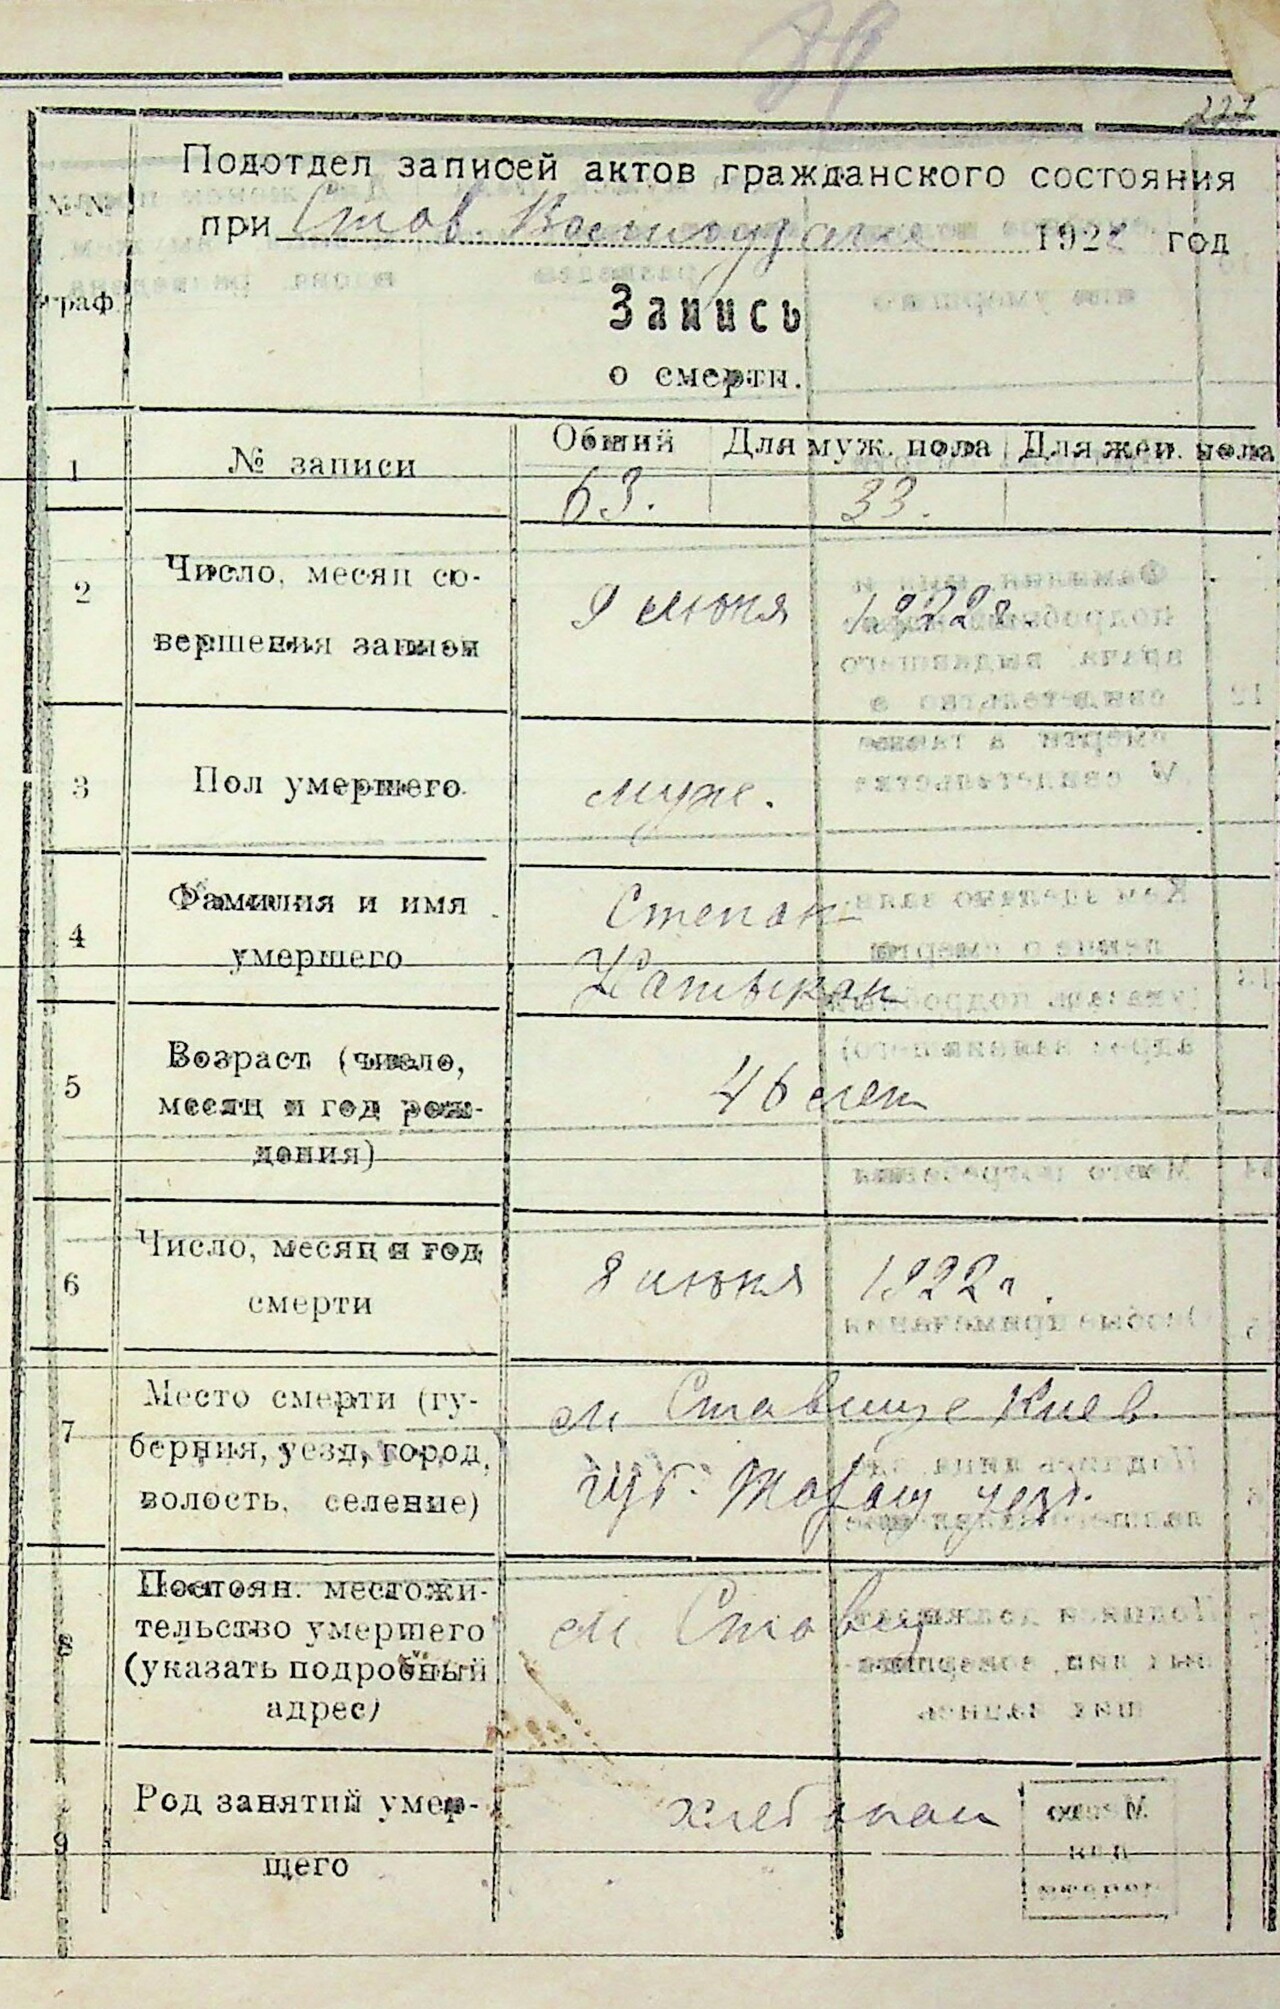 227
Подотдел записей актов гражданского состояния
при Став. 1922 год
№№
граф
Запись
о смерти.
1 № записи Общий Для муж. пола Для жен. пола
63. 33.
2 Число, месяц со-
вершения записи
9 июня 1922 г.
3 Пол умершего
муж.
4 Фамилия и имя
умершего
Степан
5 Возраст (число,
месяц и год рож-
дения)
46 лет
6 Число, месяц и год
смерти
8 июня 1922 г.
7 Место смерти (гу-
берния, уезд, город,
волость, селение)
м Ставище Киев.
губ. Таращ уезд.
8 Постоян. местожи-
тельство умершего
(указать подробный
адрес)
м Ставищ
9 Род занятий умер-
щего
хлебопаш